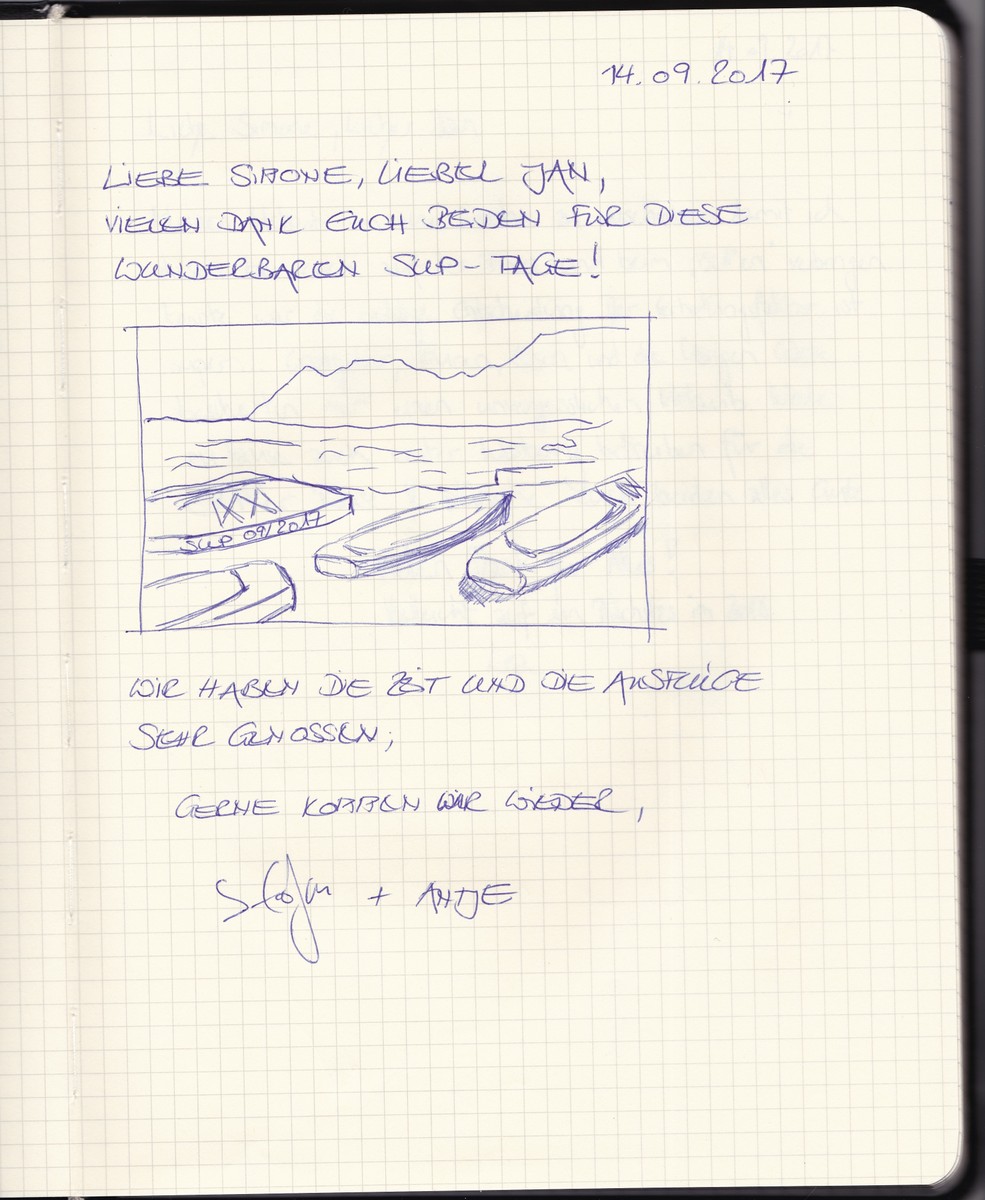 14.09.2017
LIEBE SIMONE, LIEBER JAN,
VIELEN DANK EUCH BEIDEN FÜR DIESE
WUNDERBAREN SUP-TAGE!
SUP 09/2017
WIR HABEN DIE ZEIT UND DIE AUSFLÜGE
SEHR GENOSSEN,
GERNE KOMMEN WIR WIEDER,
+ ANTJE